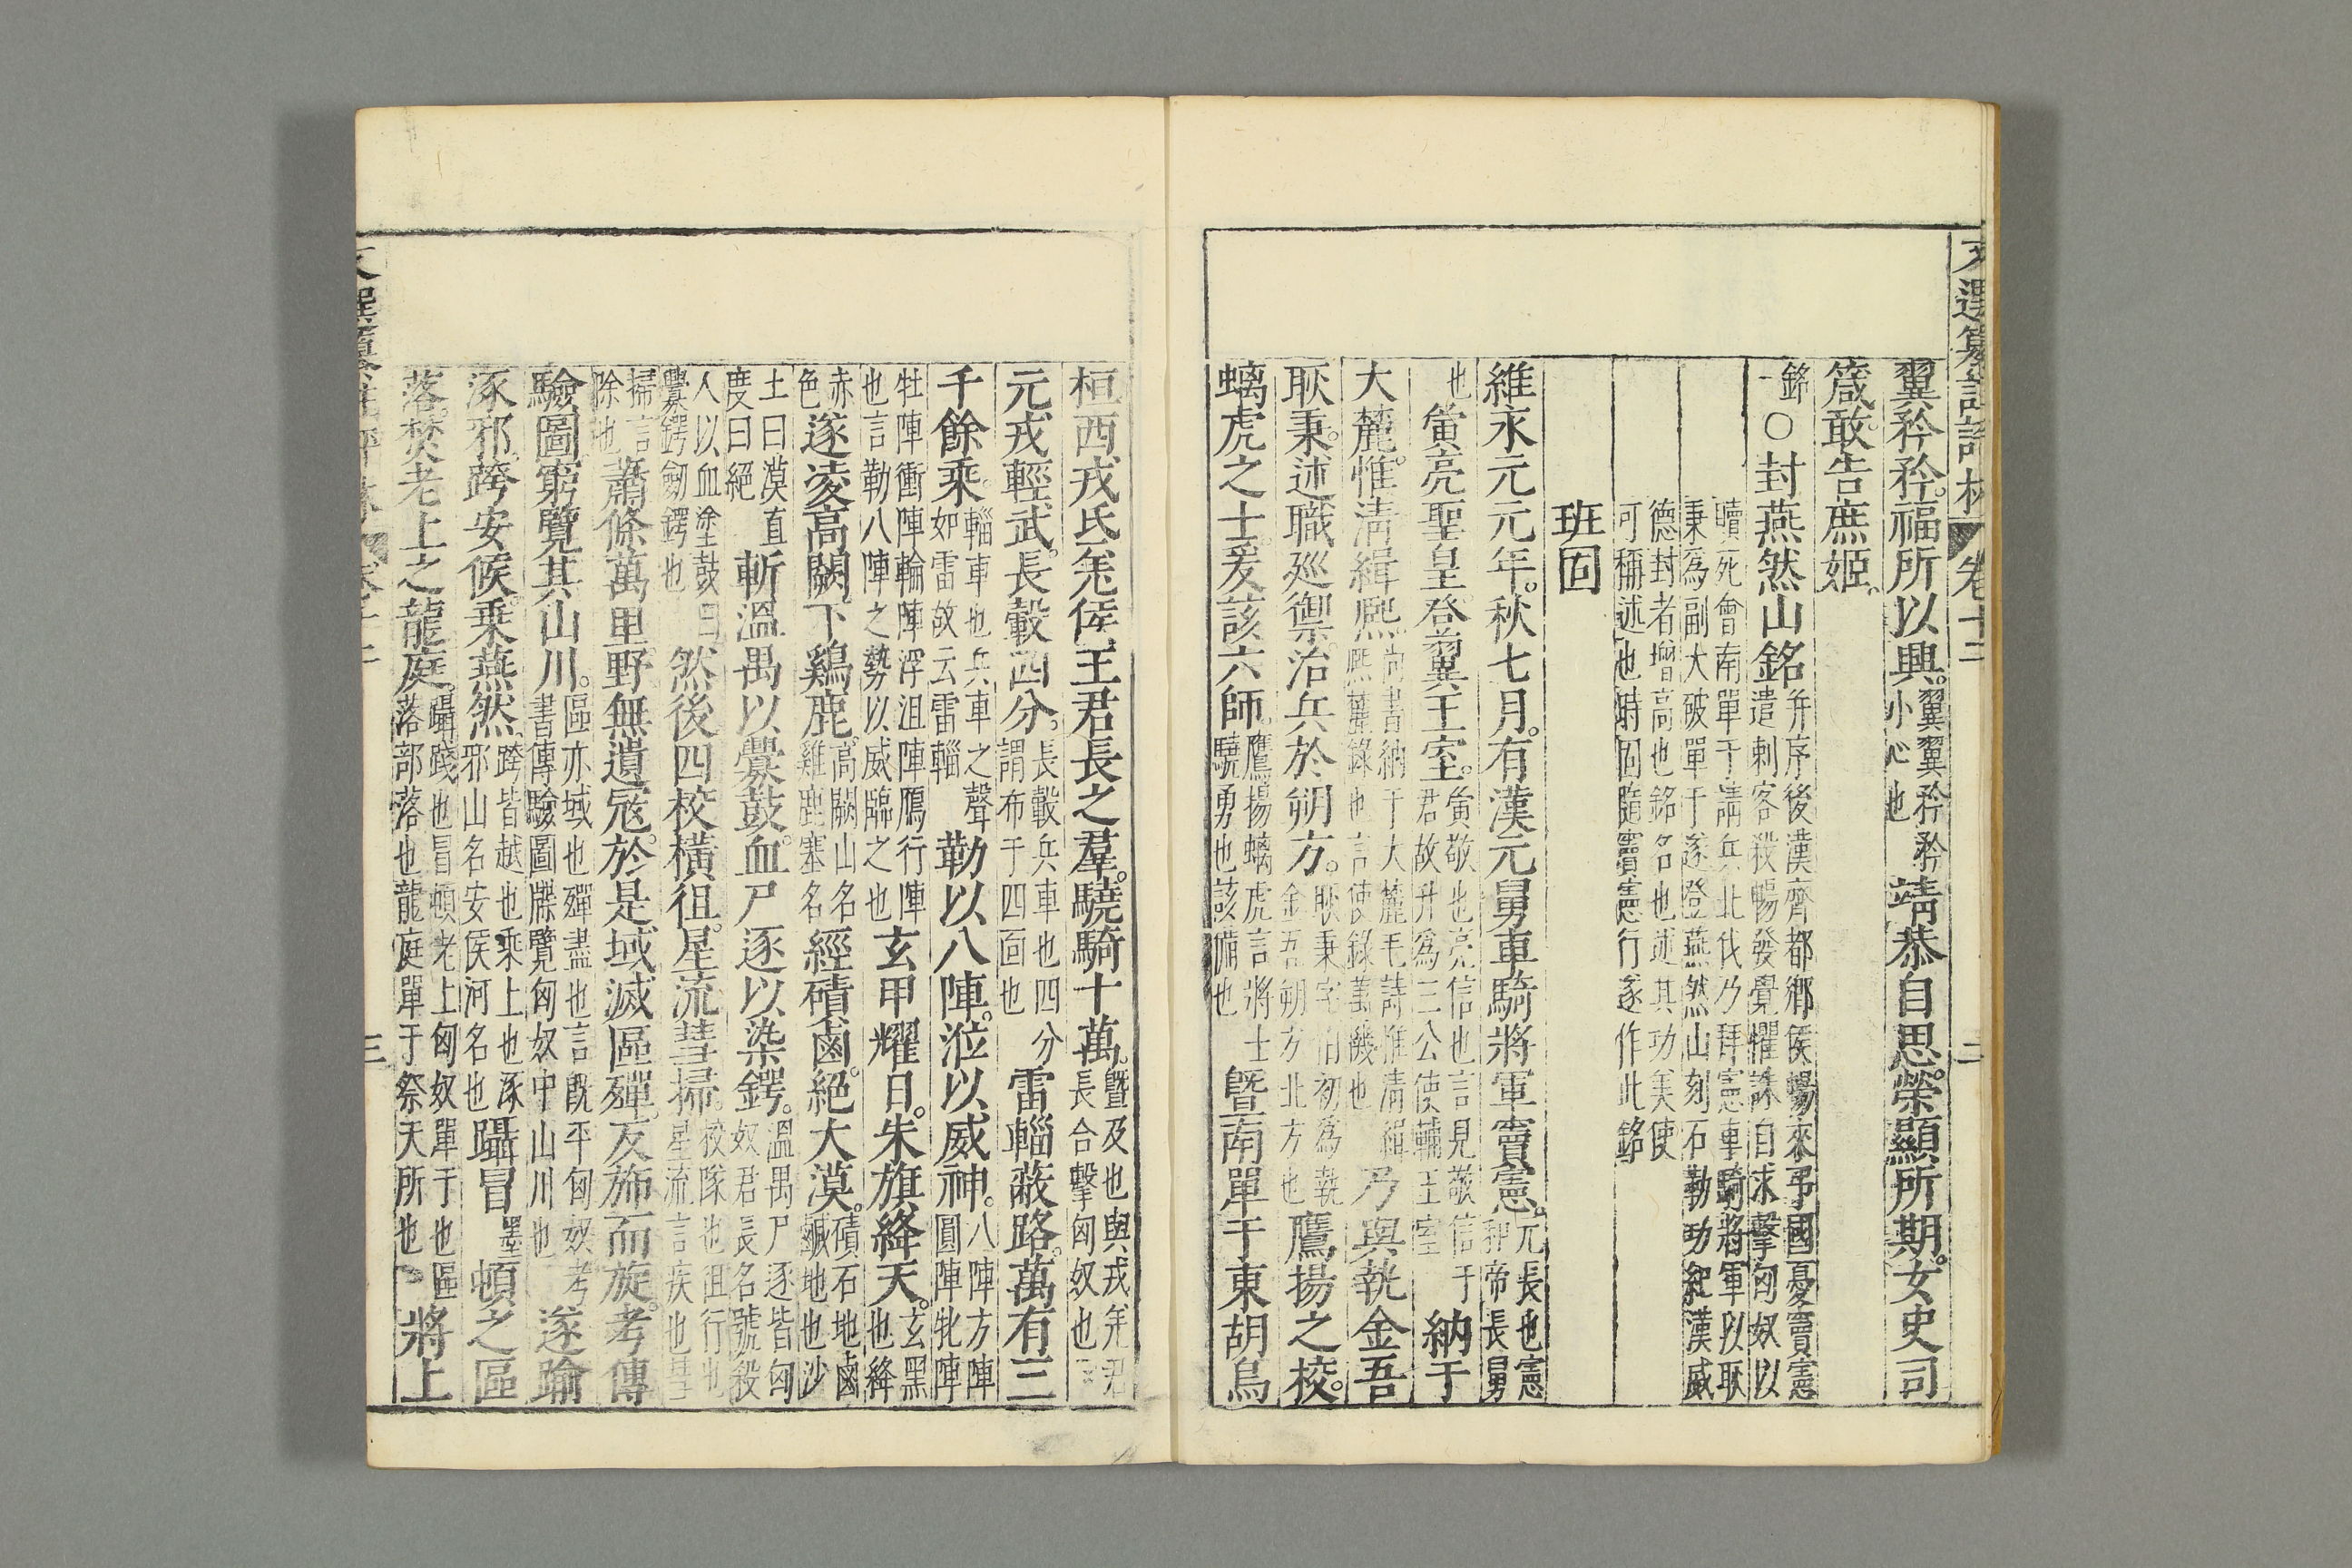 文選纂註評林 卷十二 二
翼矜矜。福所以興。翼翼矜矜小心也靖恭自思。榮顯所期。女史司
箴。敢告庶姬。
銘一〇封燕然山銘并序後漢齊都鄉侯暢來弔國憂竇憲遣刺客殺暢發覺懼誅自求擊匈奴以
贖死會南單于請兵北伐乃拜憲車騎將軍以耿秉為副大破單于遂登燕然山刻石勒功紀漢威
德封者增高也銘名也述其功美使可稱述也時固隨竇憲行遂作此銘
班固
維永元元年。秋七月。有漢元舅車騎將軍竇憲。元長也憲和帝長舅
也寅亮聖皇。登翼王室。寅敬也亮信也言見敬信于君故升為三公使輔王室納于
大麓。惟清緝熈。尚書納于大麓毛詩惟清緝熈麓錄也言使錄萬機也乃與執金吾
耿秉。述職廵禦。治兵於朔方。耿秉字伯初為執金吾朔方北方也鷹揚之校。
螭虎之士。爰該六師。鷹揚螭虎言將士驍勇也該備也暨南單于東胡烏
桓西戎氐羌侯王君長之羣。驍騎十萬。暨及也與戎羌君長合擊匈奴也
元戎輕武。長轂四分。長轂兵車也四分謂布于四面也雷輜蔽路。萬有三
千餘乘。輜車也兵車之聲如雷故云雷輜勒以八陣。涖以威神。八陣方陣圓陣牝陣
牡陣衝陣輪陣浮沮陣鴈行陣也言勒八陣之勢以威臨之也玄甲耀日。朱旗絳天。玄黑也絳
赤色遂凌高闕。下鷄鹿。高闕山名雞鹿塞名經磧鹵。絕大漠。磧石地鹵鹹地也沙
土曰漠直度曰絕斬溫禺以釁鼓。血尸逐以染鍔。溫禺尸逐皆匈奴君長名號殺
人以血塗鼓曰釁鍔劒鍔也然後四校橫徂。星流彗掃。校隊也徂行也星流言疾也彗
掃言除也蕭條萬里。野無遺寇。於是域滅區殫。反斾而旋。考傳
驗圖。窮覽其山川。區亦域也殫盡也言旣平匈奴考書傳驗圖牒覽匈奴中山川也遂踰
涿邪。跨安侯。乘燕然。跨皆越也乘上也涿邪山名安侯河名也躡冒墨頓之區
落。焚老上之龍庭。躡踐也冒頓老上匈奴單于也區落部落也龍庭單于祭天所也將上
文選纂註評林 卷十二 三